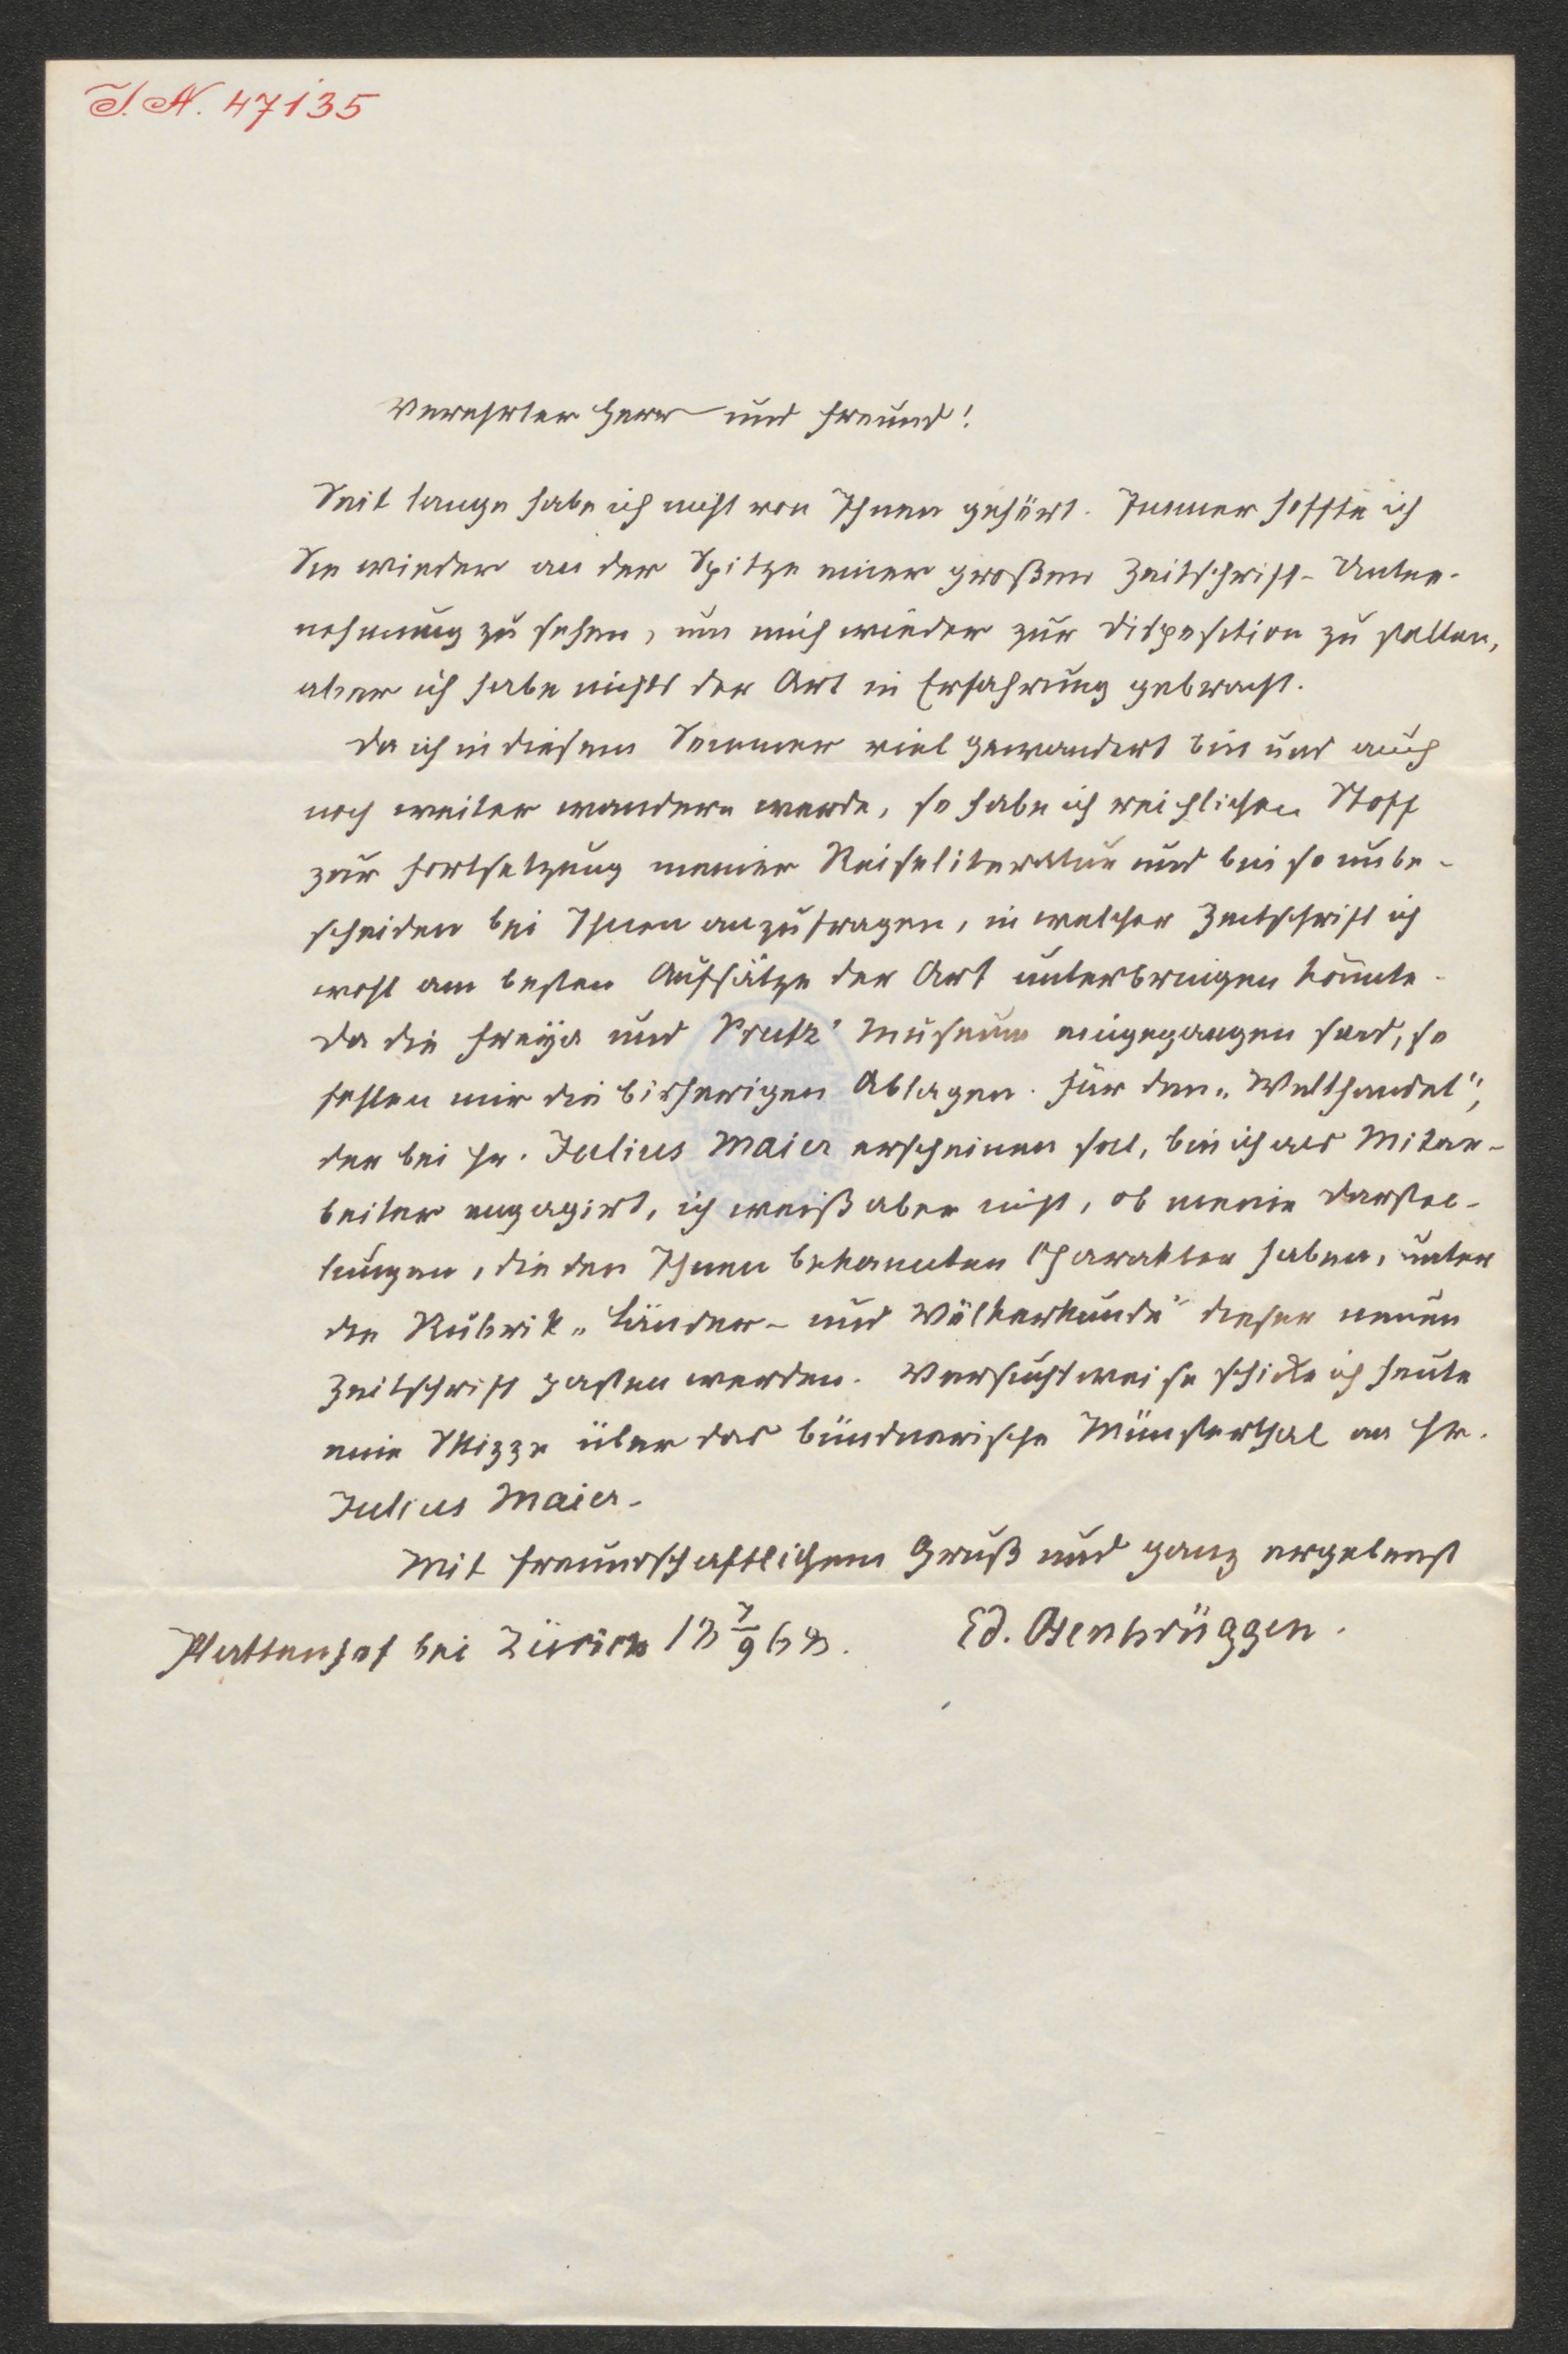 I. N. 47135
Verehrter Herr und Freund!
Seit lange habe ich nicht von Ihnen gehört. Immer hoffte ich
Sie wieder an der Spitze einer großen Zeitschrift-Unter-
nehmung zu sehen, um mich wieder zur Disposition zu stellen,
aber ich habe nichts der Art in Erfahrung gebracht.
Da ich in diesem Sommer viel gewandert bin und auch
noch weiter wandern werde, so habe ich reichlichen Stoff
zur Fortsetzung meiner Reiseliteratur und bin so unbe-
scheiden bei Ihnen anzufragen, in welcher Zeitschrift ich
wohl am besten Aufsätze der Art unterbringen könnte.
Da die Freya und Prutz' Museum eingegangen sind, so
fehlen mir die bisherigen Ablagen. Für den „Welthandel",
der bei Hr. Julius Maier erscheinen soll, bin ich als Mitar-
beiter engagirt, ich weiß aber nicht, ob meine Darstel-
lungen, die den Ihnen bekannten Charakter haben, unter
die Rubrik „Länder- und Völkerkunde" dieser neuen
Zeitschrift passen werden. Versuchsweise schicke ich heute
eine Skizze über das bündnerische Münsterthal an Hr.
Julius Maier.
Mit freundschaftlichem Gruß und ganz ergebenst
Ed. Osenbrüggen.
Plattenhof bei Zürich 18 7/9 68.